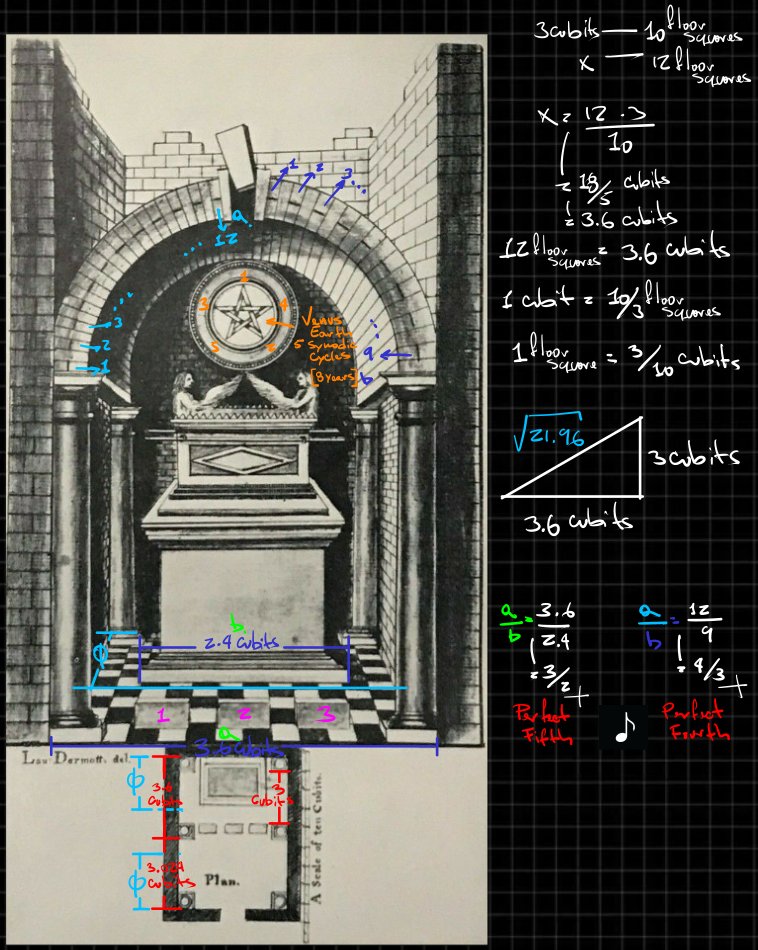 3 cubits — 10 floor squares
x — 12 floor squares
x = 12 . 3
10
= 18/5 cubits
= 3.6 cubits
12 floor squares = 3.6 cubits
1 cubit = 10/3 floor squares
1 floor square = 3/10 cubits
√21.96
3 cubits
3.6 cubits
a/b = 3.6/2.4
= 3/2
Perfect Fifth
a/b = 12/9
= 4/3
Perfect Fourth
1
2
3...
a
... 12
...
3
2
1
1
3
4
5
2
Venus
Earth
5 Synodic
Cycles
[8 years]
9
b
b
2.4 cubits
ϕ
1 2 3
a
3.6 cubits
Lau Dermott. del.
ϕ
3.6
Cubits
3
Cubits
ϕ
3.024
Cubits
Plan.
A Scale of ten Cubits.